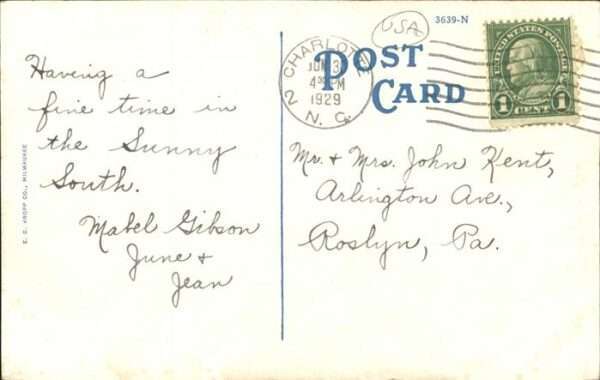 3639-N
USA
POST CARD
CHARLOTTE
JUN 3
4 30 PM
1929
2 N. C.
UNITED STATES POSTAGE
1 CENT 1
Having a
fine time in
the Sunny
South.
Mabel Gibson
June &
Jean
Mr. & Mrs. John Kent,
Arlington Ave.,
Roslyn, Pa.
E. C. KROPP CO., MILWAUKEE